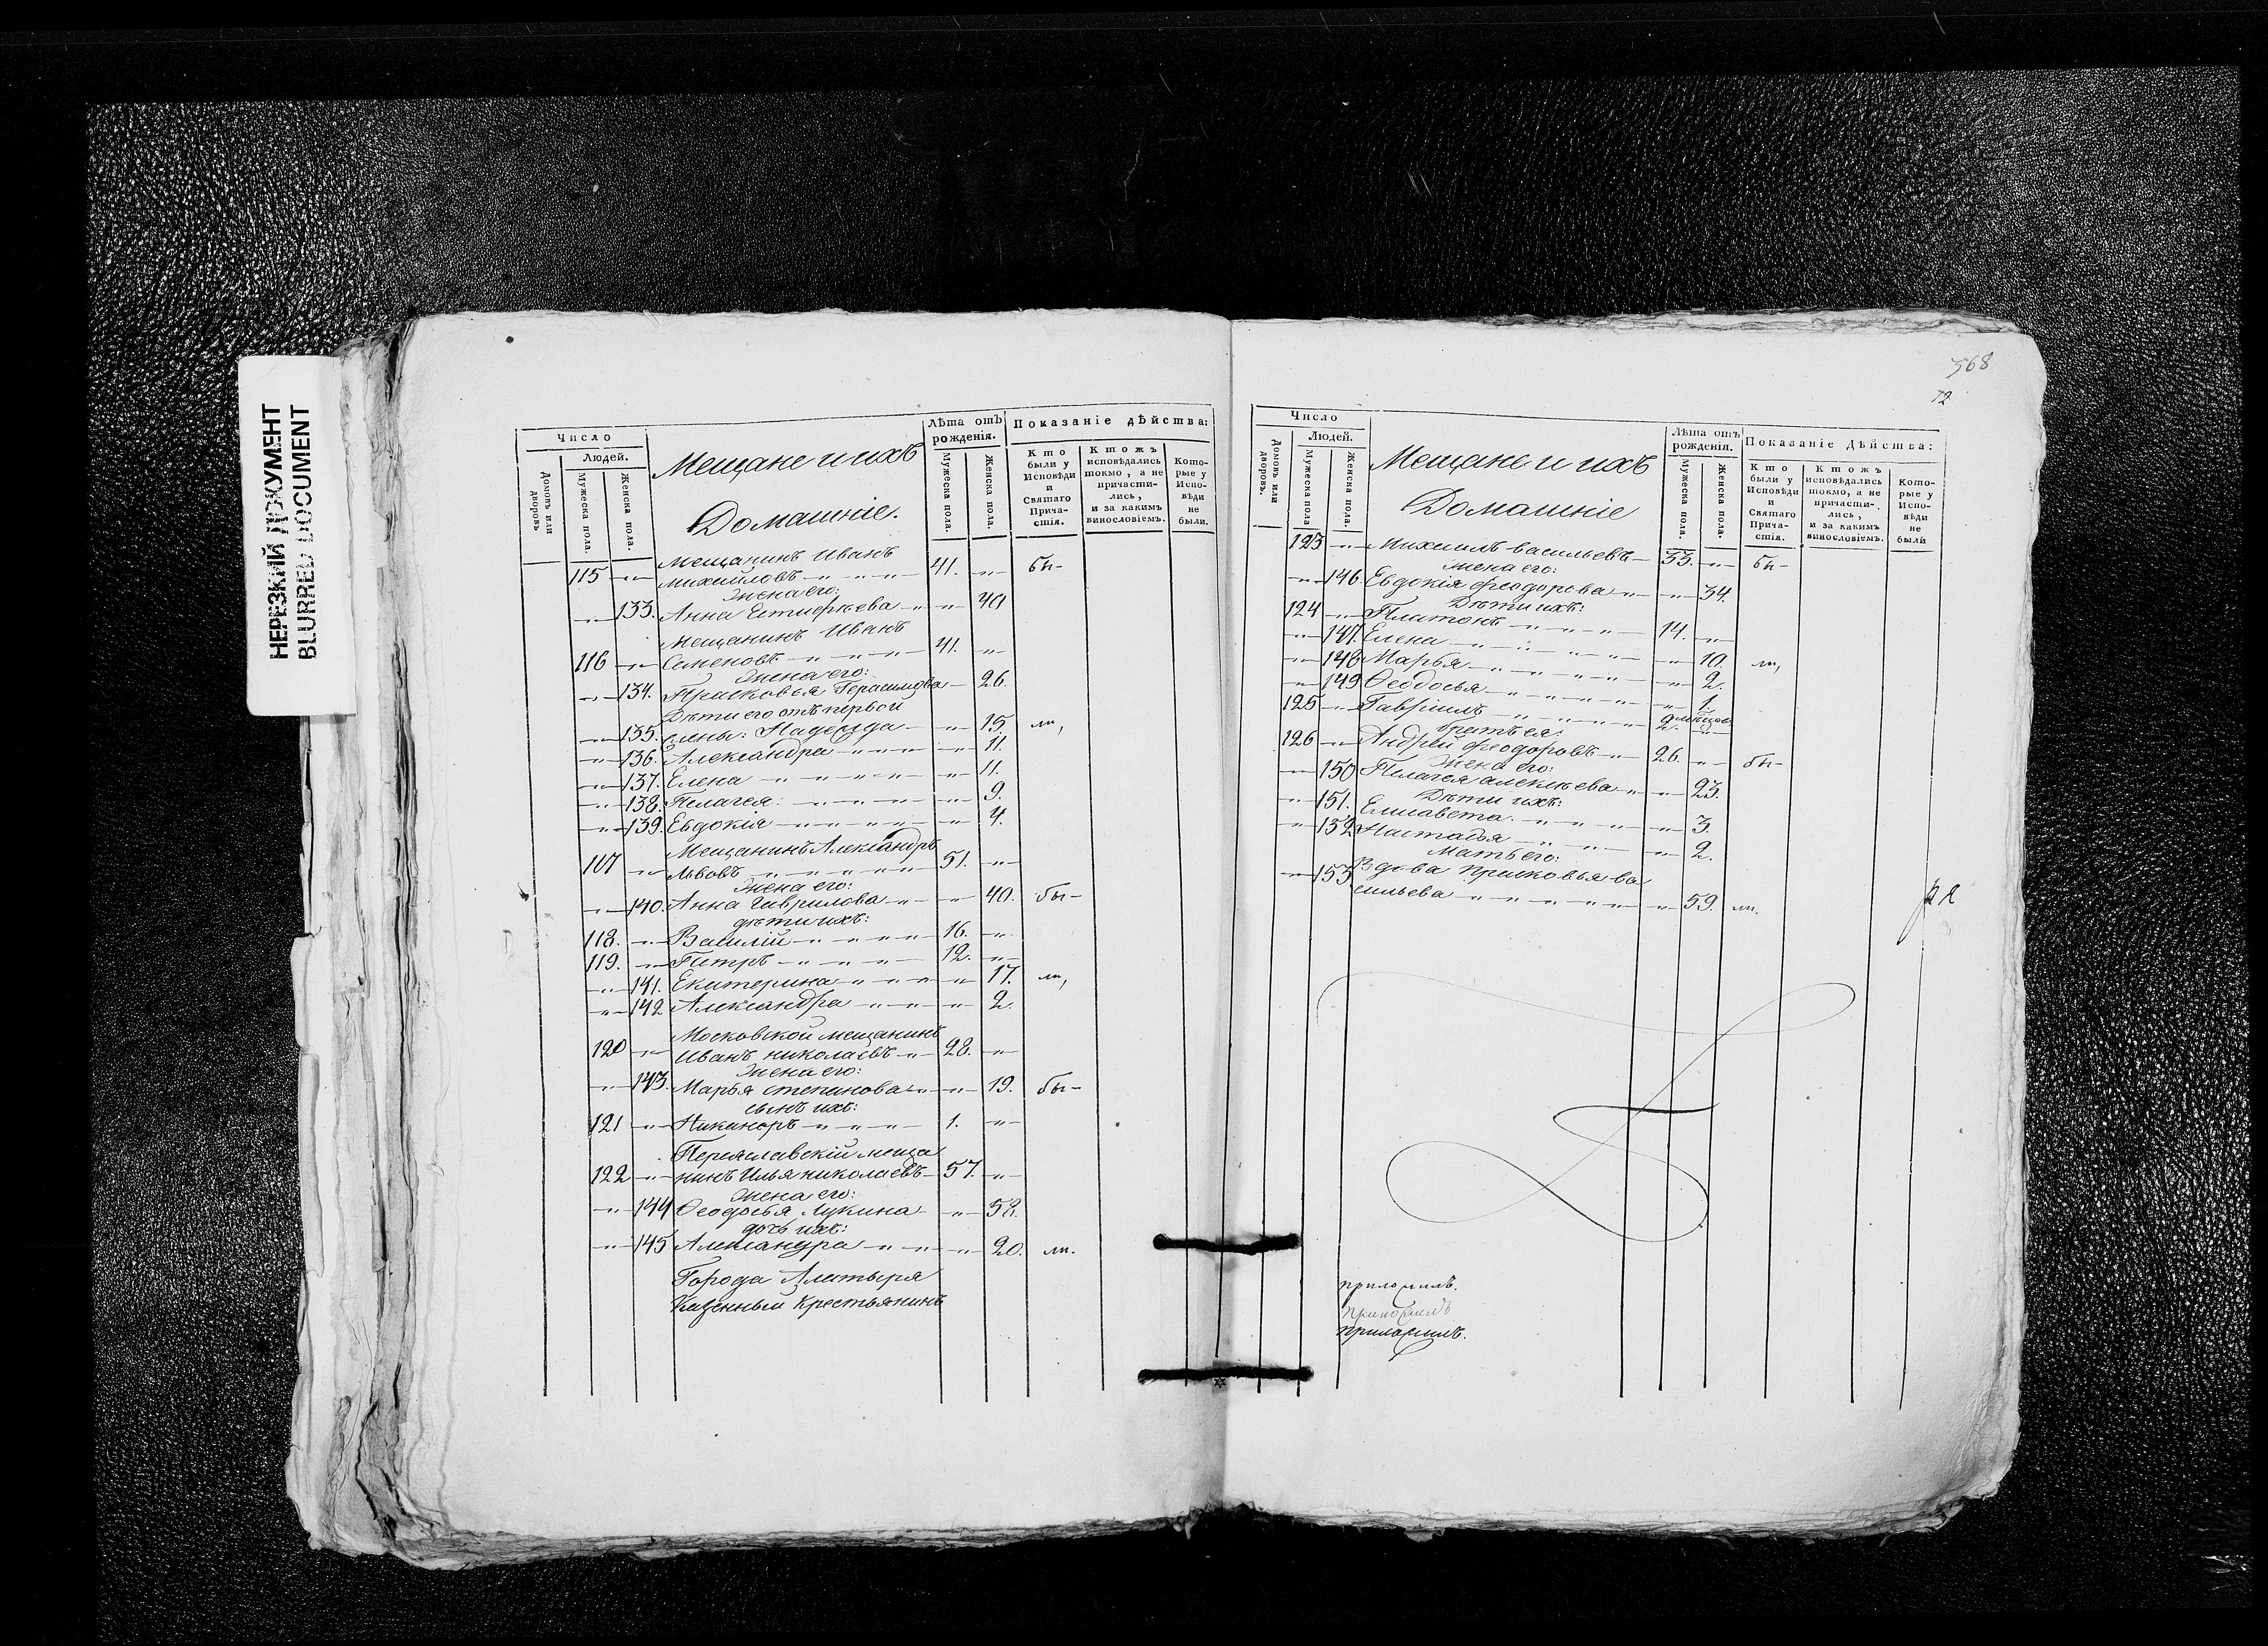 НЕРЕЗКИЙ ДОКУМЕНТ
BLURRED DOCUMENT
Число
Людей.
Домовъ или дворовъ
Мужеска пола.
Женска пола.
Мещане и ихъ
Домашніе.
Лѣта отъ рожденія.
Мужеска пола.
Женска пола.
Показаніе дѣйства:
Кто были у Исповѣди и Святаго Прича-стія.
Ктожъ исповѣдались токмо, а не причасти-лись, и за какимъ винословіемъ.
Кото-рые у Испо-вѣди не были.
Мещанинъ Иванъ
115 Михайловъ 41. бы-
Жена его:
133. Анна 40
Мещанинъ Иванъ
116 Семеновъ 41.
Жена его:
134. Прасковья Герасимова 26.
Дѣти его отъ первой
135. жены: Надежда 15. ли,
136. Александра 11.
137. Елена 11.
138. Пелагея: 9.
139. Евдокія 4.
Мещанинъ Александръ
117 Львовъ 51.
Жена его:
140. Анна Гаврилова 40. бы-
дѣти ихъ:
118. Василій 16.
119. Петръ 12.
141. Екатерина 17. ли,
142 Александра 2.
Московской мещанинъ
120 Иванъ николаевъ 28.
Жена его:
143. Марья степанова 19. бы-
сынъ ихъ:
121 Никаноръ 1.
Переяславскій меща
122 нинъ Илья николаевъ 57.
Жена его:
144 Ѳеодосья Лукина 58.
дочь ихъ:
145 Александра 20. ли.
Города Алатыря
Казенный Крестьянинъ
568
72
Число
Людей.
Домовъ или дворовъ.
Мужеска пола
Женска пола.
Мещане и ихъ
Домашніе
Лѣта отъ рожденія.
Мужеска пола.
Женска пола.
Показаніе Дѣйства:
Кто были у Исповѣди и Святаго Прича-стія.
Ктожъ исповѣдались токмо, а не причасти-лись, и за какимъ винословіемъ.
Кото-рые у Испо-вѣди не были
123 Михаилъ васильевъ 33. бы-
Жена его:
146. Евдокія феодорова 34.
Дѣти ихъ:
124 Платонъ 14.
147. Елена 10.
148 Марья 2. ли,
149 Ѳеодосья 1.
125 Гавріилъ 2.
братъ ея:
126 Андрей феодоровъ 26. бы-
Жена его:
150 Пелагея алексѣева 23.
Дѣти ихъ:
151. Елисавета. 3.
152 Настасья 2.
Мать его:
153 Вдова прасковья ва
сильева 59. ли.
приложилъ.
приложилъ
приложилъ.